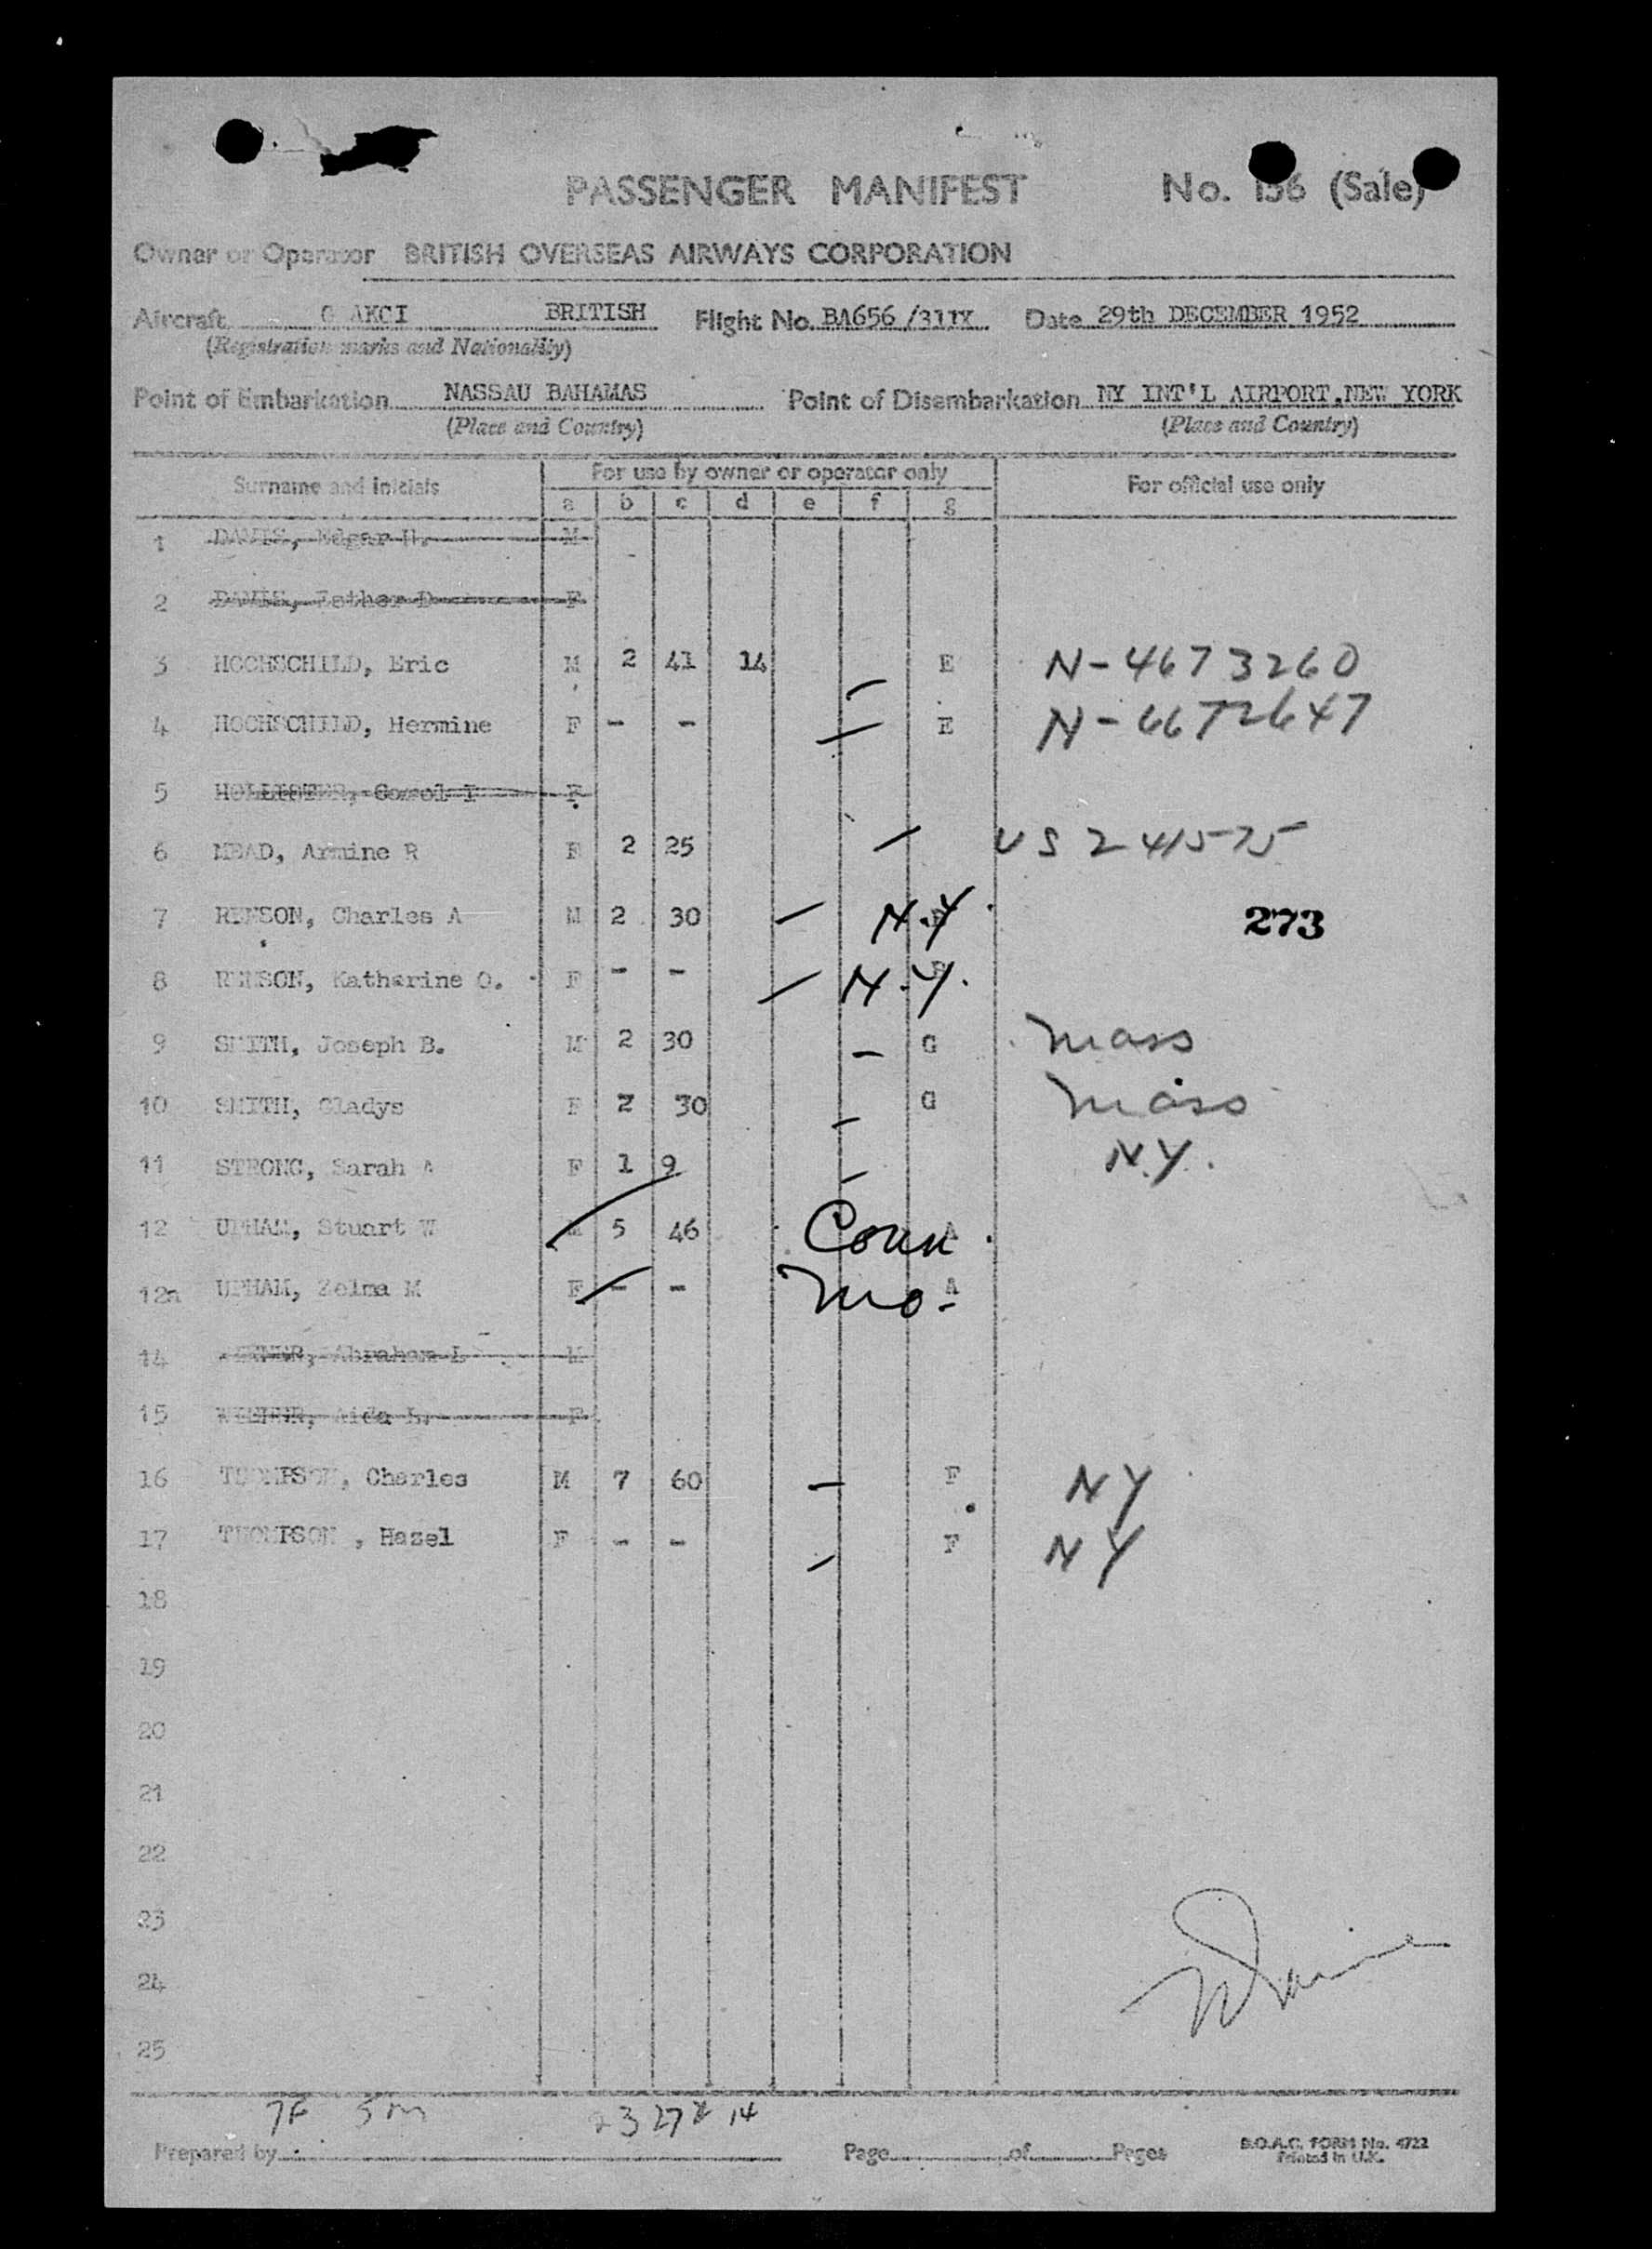 PASSENGER MANIFEST No. 156 (Sale)
Owner or Operator BRITISH OVERSEAS AIRWAYS CORPORATION
Aircraft G AKCI BRITISH Flight No. BA656 /311X Date 29th DECEMBER 1952
(Registration marks and Nationality)
Point of Embarkation NASSAU BAHAMAS Point of Disembarkation NY INT'L AIRPORT, NEW YORK
(Place and Country) (Place and Country)
Surname and initials For use by owner or operator only For official use only
a b c d e f g
1 DAVIS, Edgar H. M
2 DAVIS, Esther D F
3 HOCHSCHILD, Eric M 2 41 14 E N-4673260
4 HOCHSCHILD, Hermine F - - E N-6672647
5 HOLLISTER, Carol I F
6 MEAD, Armine R F 2 25 US 241575
7 REMSON, Charles A M 2 30 N.Y. 273
8 REMSON, Katharine O. F - - N.Y.
9 SMITH, Joseph B. M 2 30 G Mass
10 SMITH, Gladys F 2 30 G Mass
11 STRONG, Sarah A F 1 9 N.Y.
12 UPHAM, Stuart W M 5 46 Conn. A
12a UPHAM, Zelma M F - - Mo. A
14 Abraham L M
15 Aida L. F
16 THOMPSON, Charles M 7 60 F NY
17 THOMPSON , Hazel F - - F NY
18
19
20
21
22
23
24
25
7F 5M 23 278 14
Prepared by Page of Pages B.O.A.C. FORM No. 4722
Printed in U.K.